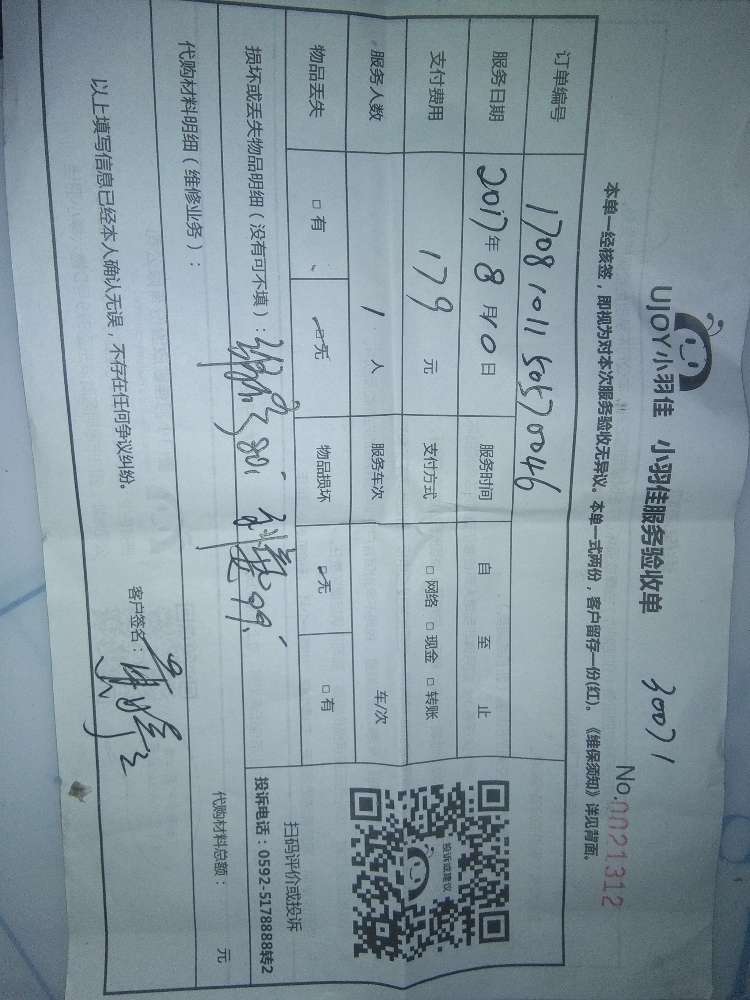 UJOY小羽佳 小羽佳服务验收单
30071
No.0021312
本单一经核签，即视为对本次服务验收无异议。本单一式两份，客户留存一份(红)。《维保须知》详见背面。
订单编号 1708101150570046
服务日期 2017年8月10日 服务时间 自 至 止
支付费用 179元 支付方式 □网络 □现金 □转账
服务人数 1人 服务车次 车/次
物品丢失 □有 □无 物品损坏 □无 □有
损坏或丢失物品明细（没有可不填）：
代购材料明细（维修业务）：
代购材料总额： 元
投诉或建议
扫码评价或投诉
投诉电话：0592-5178888转2
以上填写信息已经本人确认无误，不存在任何争议纠纷。
客户签名：